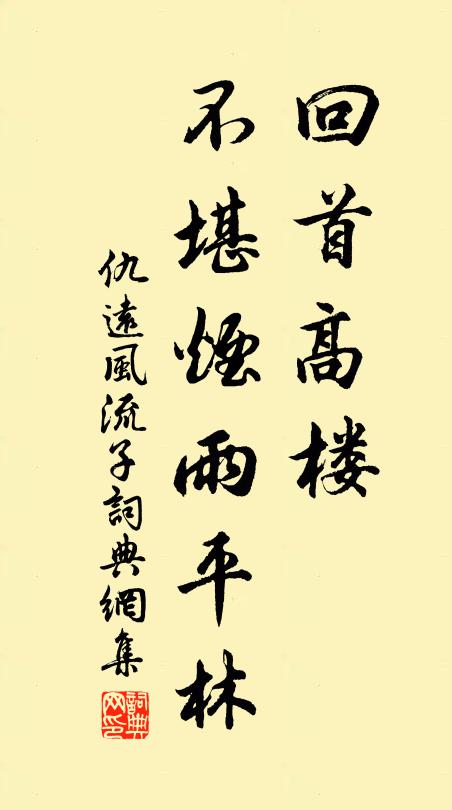 回首高楼
不堪煙雨平林
仇遠風流子詞典網集
詞典网印